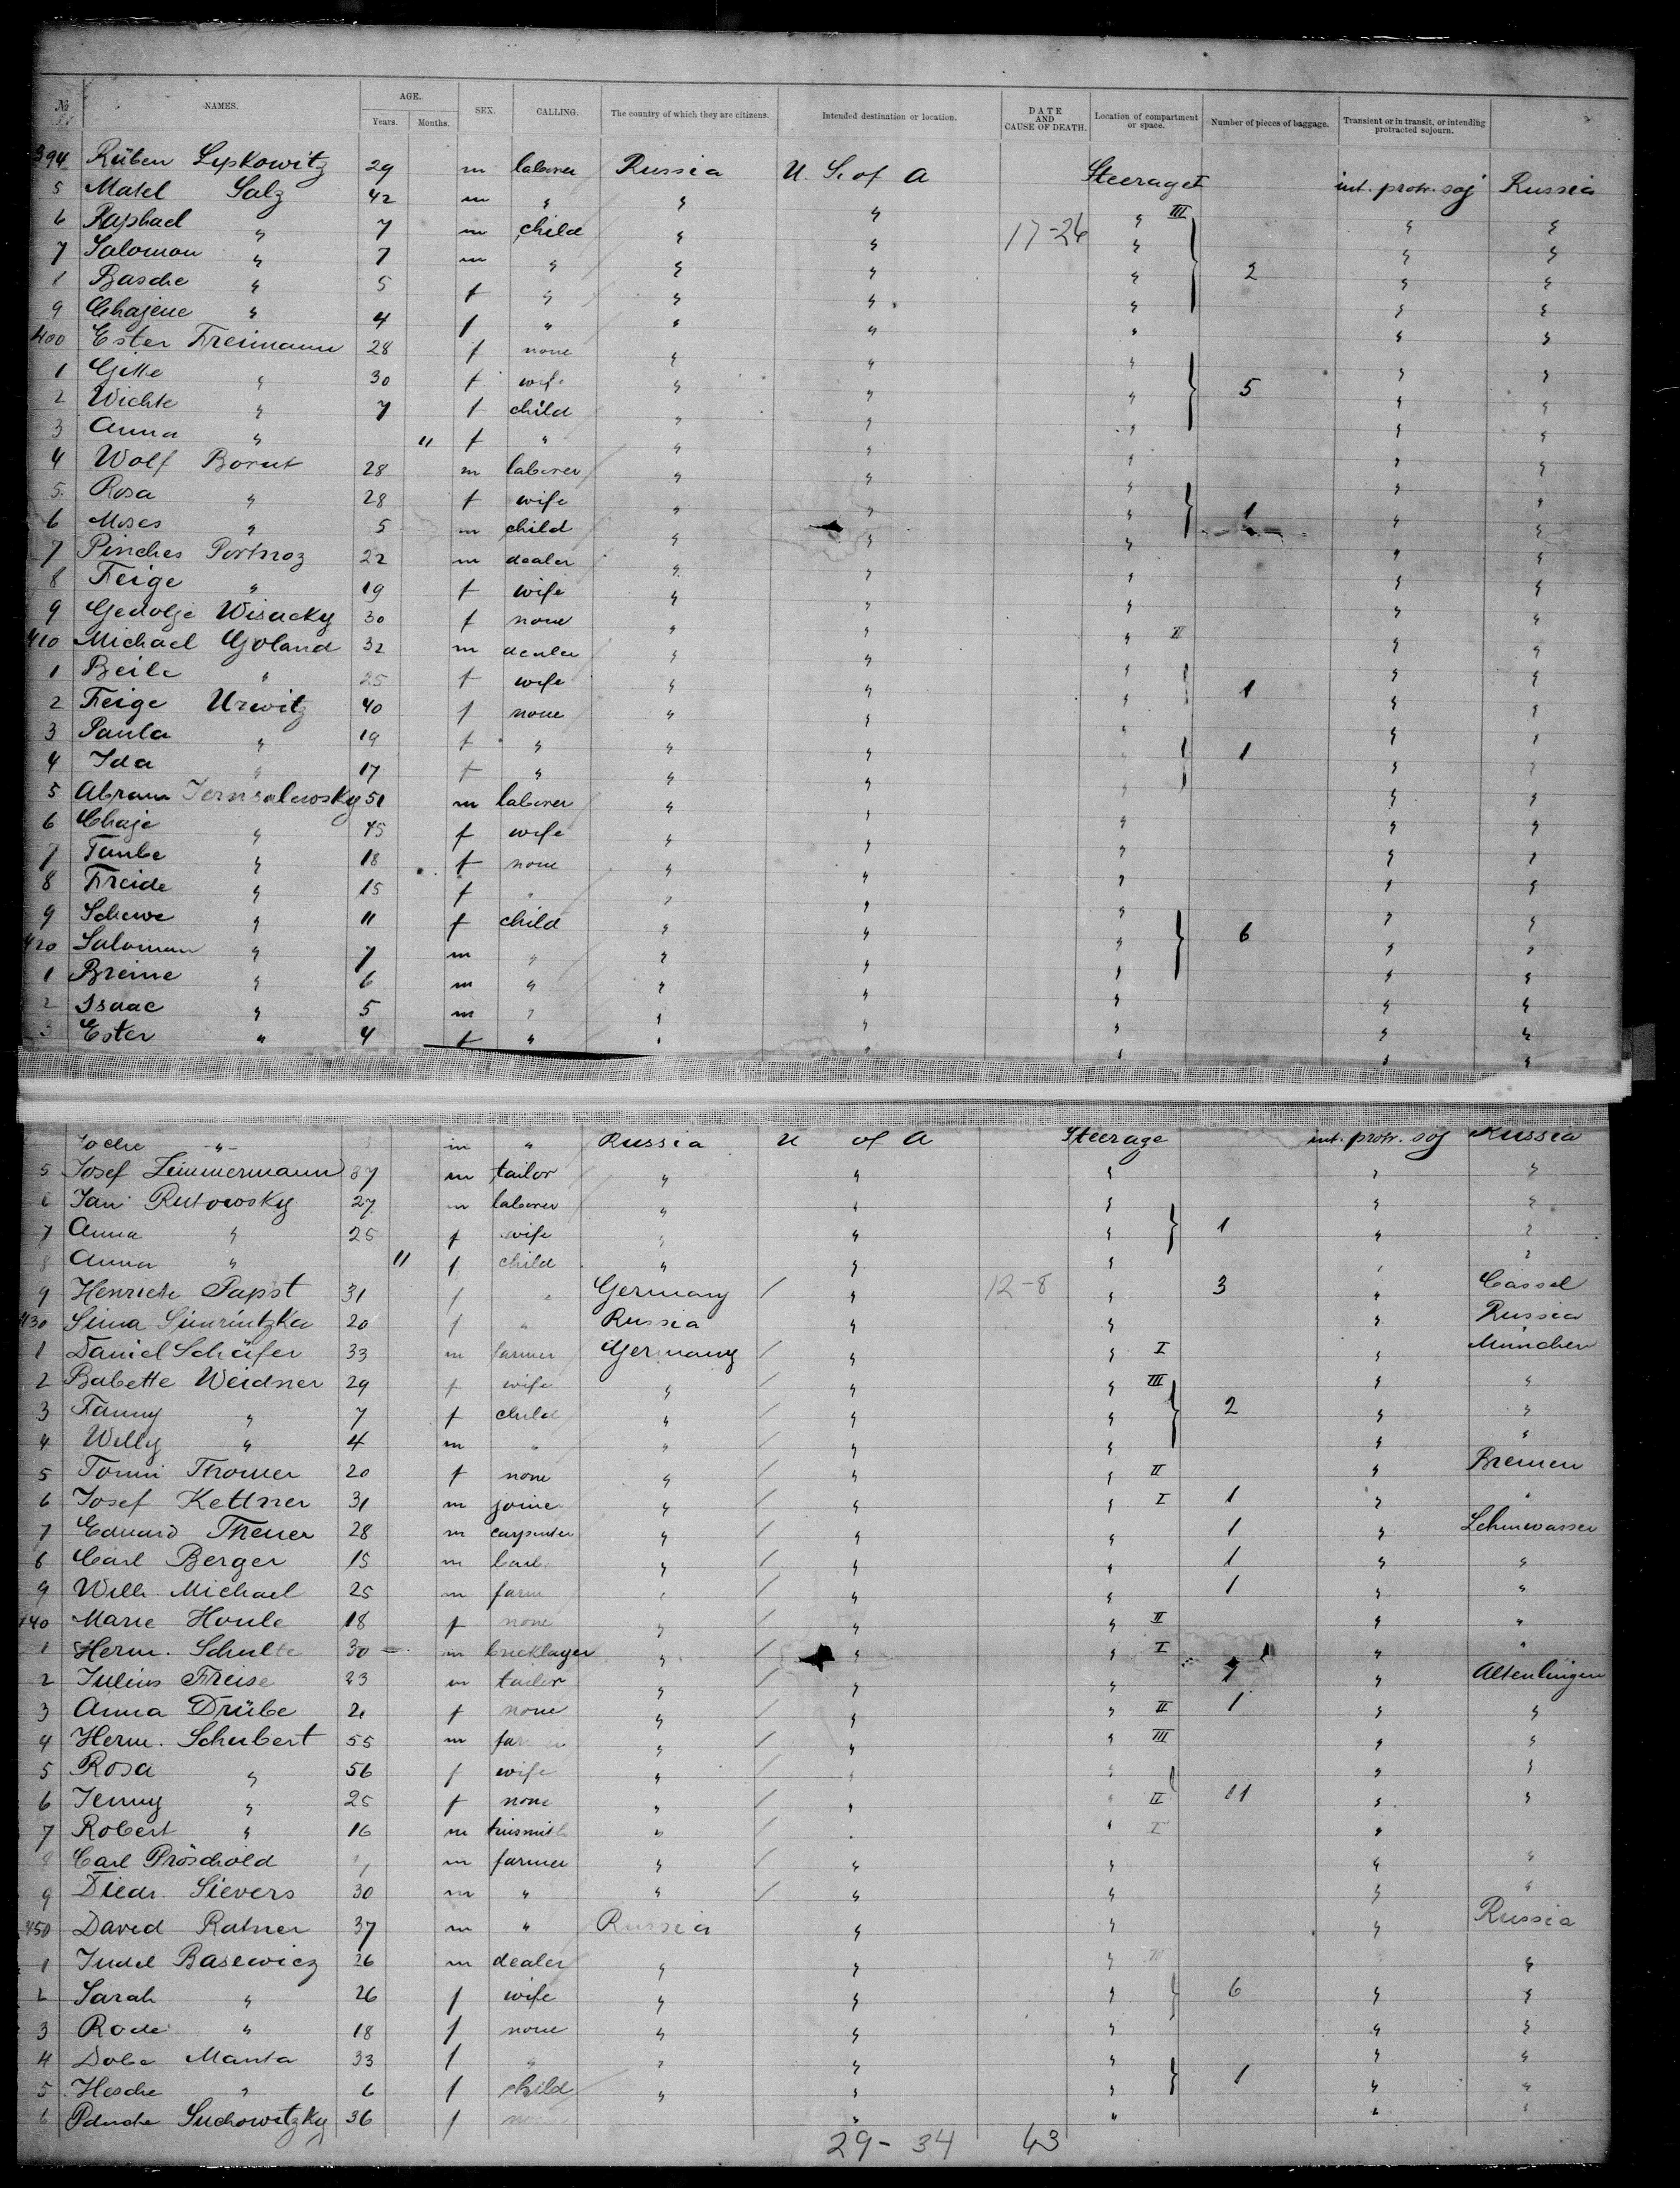 № NAMES. AGE. Years. Months. SEX. CALLING. The country of which they are citizens. Intended destination or location. DATE AND CAUSE OF DEATH. Location of compartment or space. Number of pieces of baggage. Transient or in transit, or intending protracted sojourn.
394 Rüben Lepkowitz 29 m laborer Russia U. S. of A Steerage I int. protr. soj Russia
5 Matel Salz 42 m " " " " III " "
6 Raphael " 7 m child " " 17-26 " " "
7 Salomon " 7 m " " " " 2 " "
8 Basche " 5 f " " " " " "
9 Chajene " 4 f " " " " " "
400 Ester Freimann 28 f none " " " " "
1 Gitte " 30 f wife " " " 5 " "
2 Wichte " 7 f child " " " " "
3 Anna " 11 f " " " " " "
4 Wolf Borut 28 m laborer " " " " "
5 Rosa " 28 f wife " " " 1 " "
6 Moses " 5 m child " " " " "
7 Pinches Portnoz 22 m dealer " " " " "
8 Feige " 19 f wife " " " " "
9 Gedolje Wisacky 30 f none " " " II " "
410 Michael Goland 32 m dealer " " " " "
1 Beile " 25 f wife " " " 1 " "
2 Feige Urwitz 40 f none " " " " "
3 Paula " 19 f " " " " 1 " "
4 Ida " 17 f " " " " " "
5 Abram Jerusalewsky 51 m laborer " " " " "
6 Chaje " 45 f wife " " " " "
7 Taube " 18 f none " " " " "
8 Freide " 15 f " " " " " "
9 Schewe " 11 f child " " " 6 " "
420 Salomon " 7 m " " " " " "
1 Breine " 6 m " " " " " "
2 Isaac " 5 m " " " " " "
3 Ester " 4 f " " " " " "
Joche " m " Russia U of A Steerage int. protr. soj Russia
5 Josef Zimmermann 37 m tailor " " " " "
6 Jan Rutowsky 27 m laborer " " " " "
7 Anna " 25 f wife " " " 1 " "
8 Anna " 11 f child " " " " "
9 Henriete Papst 31 f " Germany " 12-8 " 3 " Cassel
430 Sima Simrintzka 20 f " Russia " " " Russia
1 Daniel Schäfer 33 m farmer Germany " " I " München
2 Babette Weidner 29 f wife " " " III " "
3 Fanny " 7 f child " " " 2 " "
4 Willy " 4 m " " " " " "
5 Tonni Thomer 20 f none " " " II " Bremen
6 Josef Kettner 31 m joiner " " " I 1 " "
7 Eduard Theuer 28 m carpenter " " " 1 " Lehmwasser
8 Carl Berger 15 m " " " 1 " "
9 Willi Michael 25 m farm " " " 1 " "
440 Marie Houle 18 f none " " " II " "
1 Herm. Schulte 30 m bricklayer " " " I " "
2 Julius Freise 23 m tailor " " " 1 " Altenlingen
3 Anna Drübe 21 f none " " " II 1 " "
4 Herm. Schubert 55 m far " " " III " "
5 Rosa " 56 f wife " " " " "
6 Jenny " 25 f none " " " II 11 " "
7 Robert " 16 m tinsmith " " " I "
8 Carl Pröschold m farmer " " " " "
9 Diedr. Sievers 30 m " " " " " "
450 David Ratner 37 m " Russia " " " Russia
1 Judel Basewicz 26 m dealer " " " III "
2 Sarah " 26 f wife " " " 6 " "
3 Rode " 18 f none " " " " "
4 Dobe Manta 33 f " " " " " "
5 Hesche " 6 f child " " " 1 " "
6 Suchowitzky 36 f " " " "
29-34 43